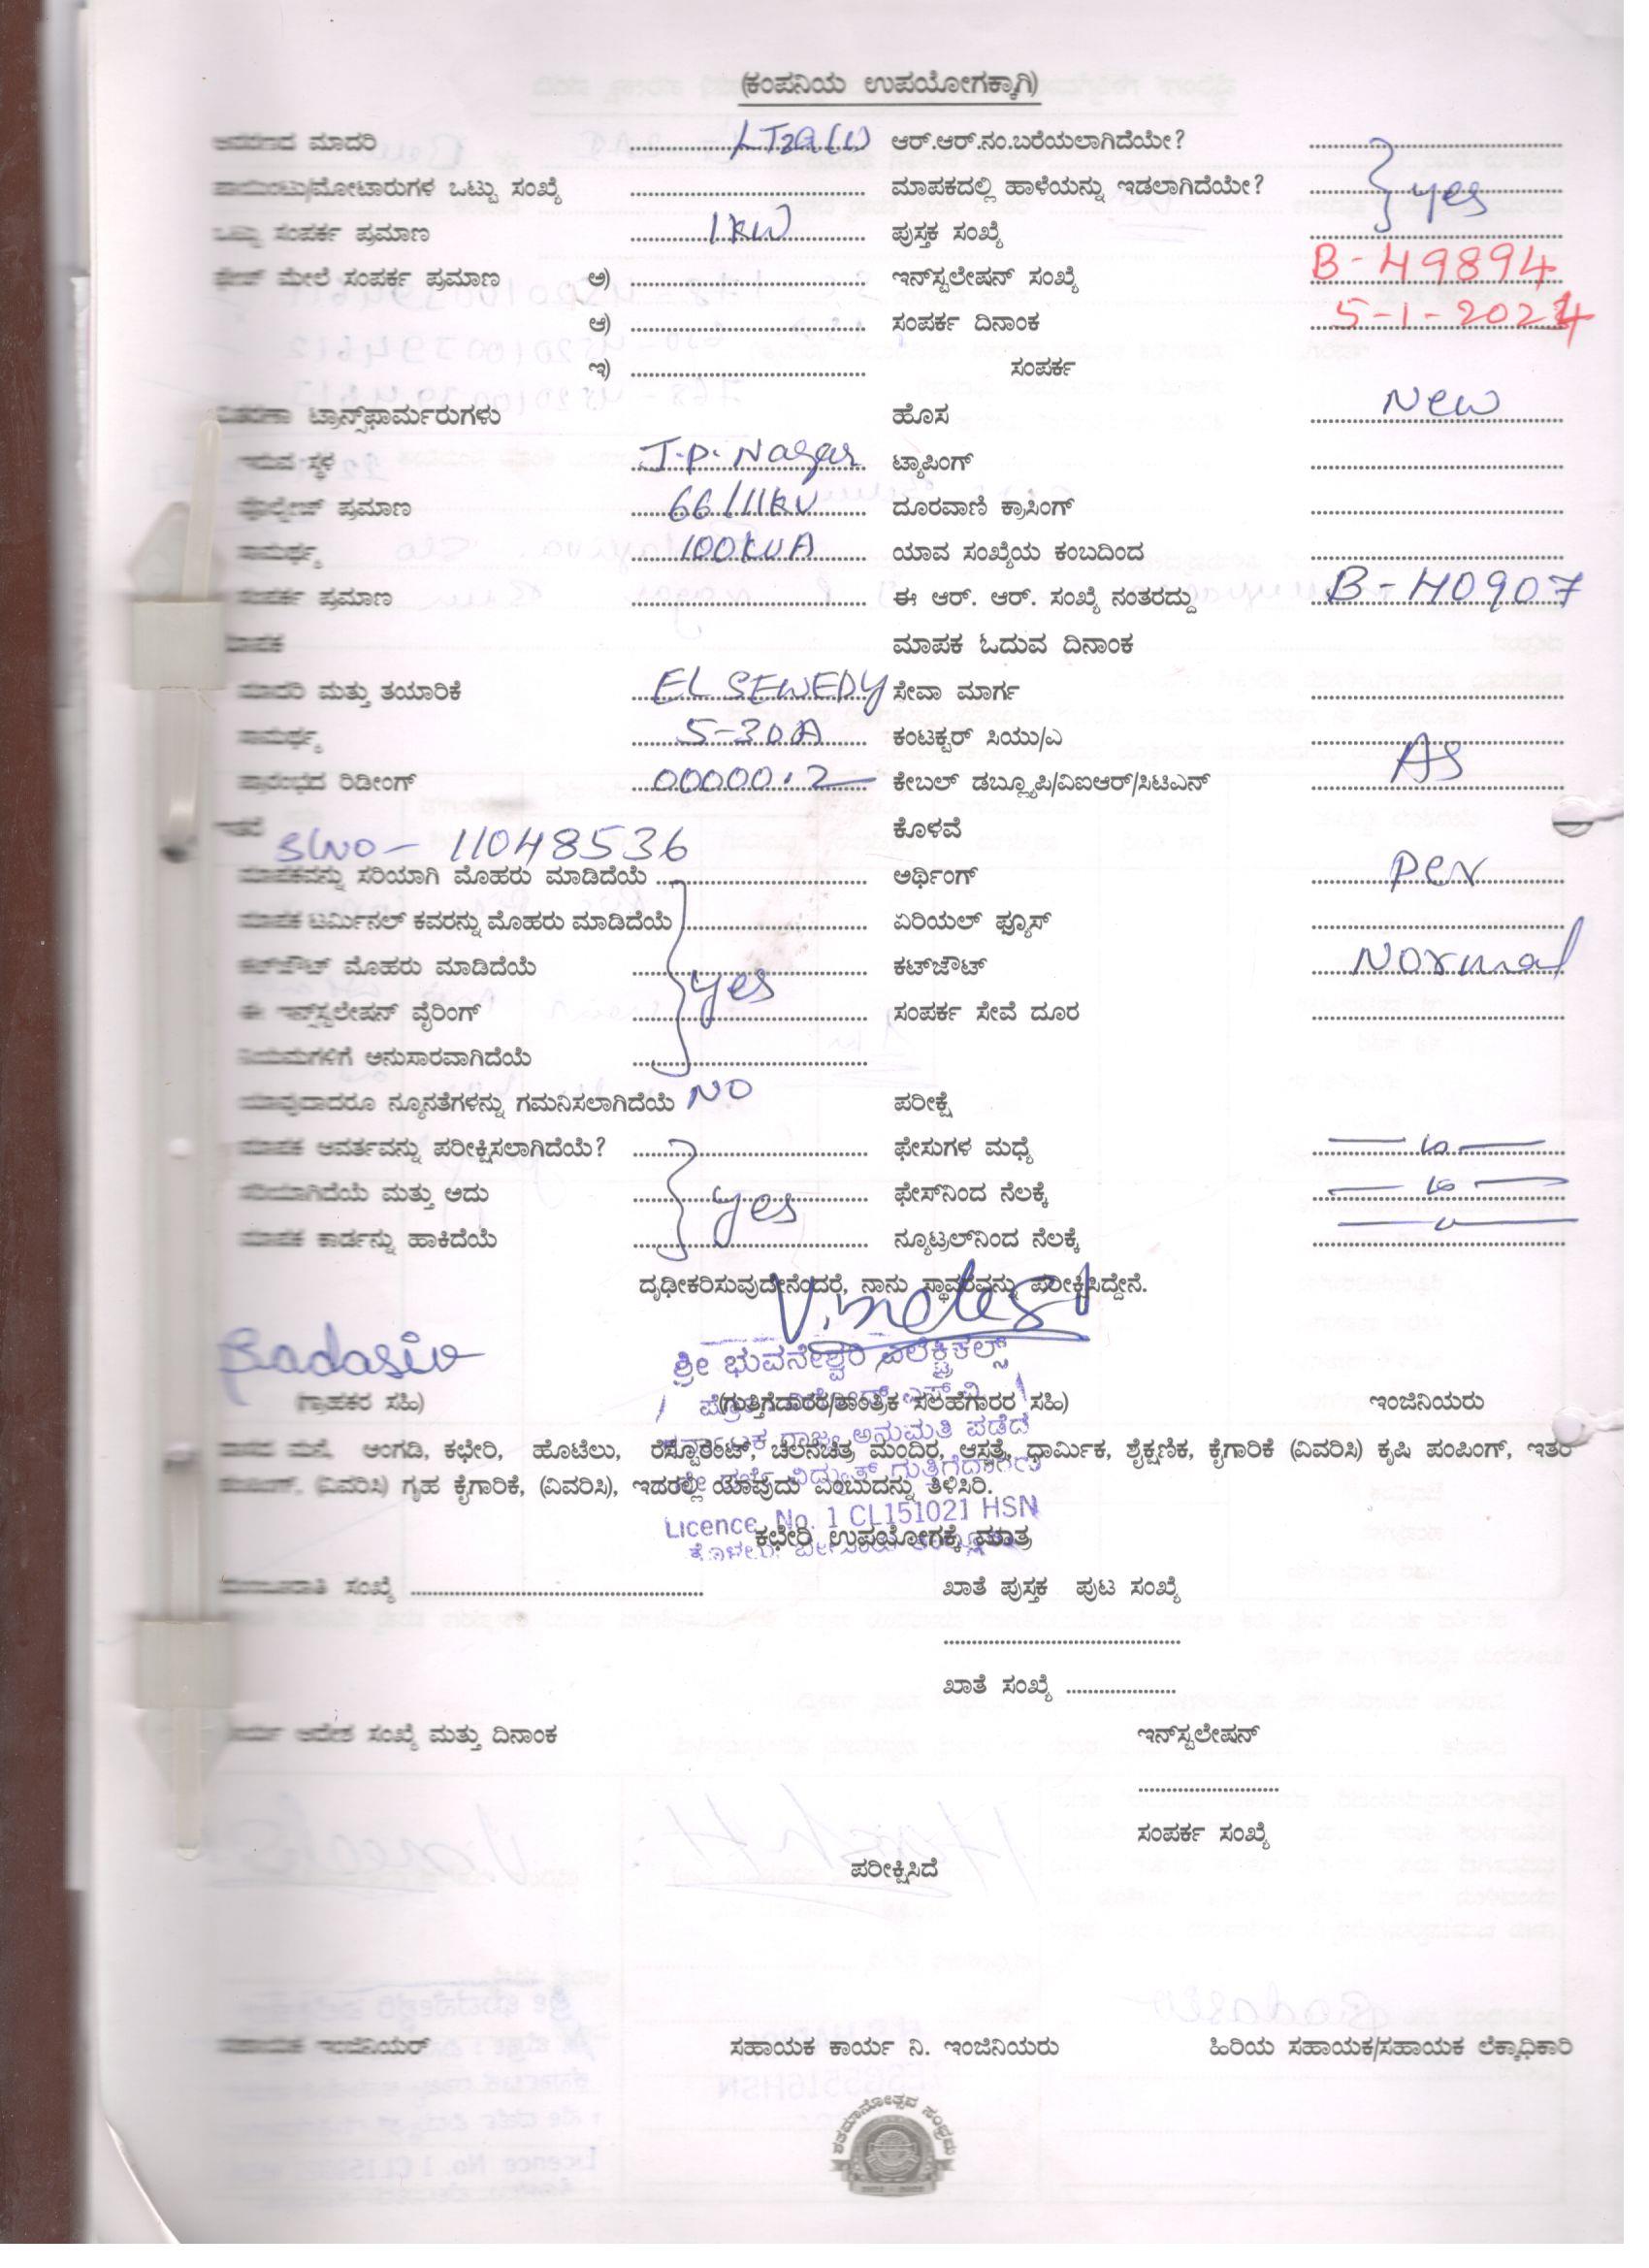 (ಕಂಪನಿಯ ಉಪಯೋಗಕ್ಕಾಗಿ)
ಮಾದರಿ LT2a(i) ಆರ್.ಆರ್.ನಂ.ಬರೆಯಲಾಗಿದೆಯೇ?
ಪಾಯಿಂಟು/ಮೋಟಾರುಗಳ ಒಟ್ಟು ಸಂಖ್ಯೆ ಮಾಪಕದಲ್ಲಿ ಹಾಳೆಯನ್ನು ಇಡಲಾಗಿದೆಯೇ? } yes
ಒಟ್ಟು ಸಂಪರ್ಕ ಪ್ರಮಾಣ 1kW ಪುಸ್ತಕ ಸಂಖ್ಯೆ
ಫೇಜ್ ಮೇಲೆ ಸಂಪರ್ಕ ಪ್ರಮಾಣ ಅ) ಇನ್‌ಸ್ಟಲೇಷನ್ ಸಂಖ್ಯೆ B-49894
ಆ) ಸಂಪರ್ಕ ದಿನಾಂಕ 5-1-2024
ಇ) ಸಂಪರ್ಕ
ವಿತರಣಾ ಟ್ರಾನ್ಸ್‌ಫಾರ್ಮರುಗಳು ಹೊಸ New
ಇರುವ ಸ್ಥಳ J.P. Nagar ಟ್ಯಾಪಿಂಗ್
ವೋಲ್ಟೇಜ್ ಪ್ರಮಾಣ 66/11kV ದೂರವಾಣಿ ಕ್ರಾಸಿಂಗ್
ಸಾಮರ್ಥ್ಯ 100KVA ಯಾವ ಸಂಖ್ಯೆಯ ಕಂಬದಿಂದ
ಸಂಪರ್ಕ ಪ್ರಮಾಣ ಈ ಆರ್. ಆರ್. ಸಂಖ್ಯೆ ನಂತರದ್ದು B-40907
ಮಾಪಕ ಮಾಪಕ ಓದುವ ದಿನಾಂಕ
ಮಾದರಿ ಮತ್ತು ತಯಾರಿಕೆ EL SEWEDY ಸೇವಾ ಮಾರ್ಗ
ಸಾಮರ್ಥ್ಯ 5-30A ಕಂಟಕ್ಟರ್ ಸಿಯು/ಎ
ಪ್ರಾರಂಭದ ರಿಡೀಂಗ್ 00000.2 ಕೇಬಲ್ ಡಬ್ಲ್ಯೂಪಿ/ವಿಐಆರ್/ಸಿಟಿಎನ್ AS
ಇತರೆ SLNO- 11048536 ಕೊಳವೆ
ಮಾಪಕವನ್ನು ಸರಿಯಾಗಿ ಮೊಹರು ಮಾಡಿದೆಯೆ ಅರ್ಥಿಂಗ್ per
ಮಾಪಕ ಟರ್ಮಿನಲ್ ಕವರನ್ನು ಮೊಹರು ಮಾಡಿದೆಯೆ ಏರಿಯಲ್ ಫ್ಯೂಸ್
ಕಟ್‌ಔಟ್ ಮೊಹರು ಮಾಡಿದೆಯೆ } yes ಕಟ್‌ಔಟ್ Normal
ಈ ಇನ್‌ಸ್ಟಲೇಷನ್ ವೈರಿಂಗ್ ಸಂಪರ್ಕ ಸೇವೆ ದೂರ
ನಿಯಮಗಳಿಗೆ ಅನುಸಾರವಾಗಿದೆಯೆ
ಯಾವುದಾದರೂ ನ್ಯೂನತೆಗಳನ್ನು ಗಮನಿಸಲಾಗಿದೆಯೆ NO ಪರೀಕ್ಷೆ
ಮಾಪಕ ಆವರ್ತವನ್ನು ಪರೀಕ್ಷಿಸಲಾಗಿದೆಯೆ? ಫೇಸುಗಳ ಮಧ್ಯೆ
ಸರಿಯಾಗಿದೆಯೆ ಮತ್ತು ಅದು } yes ಫೇಸ್‌ನಿಂದ ನೆಲಕ್ಕೆ
ಮಾಪಕ ಕಾರ್ಡನ್ನು ಹಾಕಿದೆಯೆ ನ್ಯೂಟ್ರಲ್‌ನಿಂದ ನೆಲಕ್ಕೆ
ದೃಢೀಕರಿಸುವುದೇನೆಂದರೆ, ನಾನು ಸ್ಥಾವರವನ್ನು ಪರೀಕ್ಷಿಸಿದ್ದೇನೆ.
Sadasiv
ಶ್ರೀ ಭುವನೇಶ್ವರಿ ಎಲೆಕ್ಟ್ರಿಕಲ್ಸ್
(ಗ್ರಾಹಕರ ಸಹಿ) (ಗುತ್ತಿಗೆದಾರರ/ತಾಂತ್ರಿಕ ಸಲಹೆಗಾರರ ಸಹಿ) ಇಂಜಿನಿಯರು
ಕರ್ನಾಟಕ ರಾಜ್ಯ ಅನುಮತಿ ಪಡೆದ
ವಾಸದ ಮನೆ, ಅಂಗಡಿ, ಕಛೇರಿ, ಹೊಟೆಲು, ರೆಸ್ಟೊರೆಂಟ್, ಚಲನಚಿತ್ರ ಮಂದಿರ, ಆಸ್ಪತ್ರೆ, ಧಾರ್ಮಿಕ, ಶೈಕ್ಷಣಿಕ, ಕೈಗಾರಿಕೆ (ವಿವರಿಸಿ) ಕೃಷಿ ಪಂಪಿಂಗ್, ಇತರೆ
ವಿದ್ಯುತ್ ಗುತ್ತಿಗೆದಾರರು
ಪಂಪಿಂಗ್, (ವಿವರಿಸಿ) ಗೃಹ ಕೈಗಾರಿಕೆ, (ವಿವರಿಸಿ), ಇದರಲ್ಲಿ ಯಾವುದು ಎಂಬುದನ್ನು ತಿಳಿಸಿರಿ.
Licence No. 1 CL151021 HSN
ಕಛೇರಿ ಉಪಯೋಗಕ್ಕೆ ಮಾತ್ರ
ಮಂಜೂರಾತಿ ಸಂಖ್ಯೆ ಖಾತೆ ಪುಸ್ತಕ ಪುಟ ಸಂಖ್ಯೆ
ಖಾತೆ ಸಂಖ್ಯೆ
ಕಾರ್ಯ ಆದೇಶ ಸಂಖ್ಯೆ ಮತ್ತು ದಿನಾಂಕ ಇನ್‌ಸ್ಟಲೇಷನ್
ಸಂಪರ್ಕ ಸಂಖ್ಯೆ
ಪರೀಕ್ಷಿಸಿದೆ
ಸಹಾಯಕ ಇಂಜಿನಿಯರ್ ಸಹಾಯಕ ಕಾರ್ಯ ನಿ. ಇಂಜಿನಿಯರು ಹಿರಿಯ ಸಹಾಯಕ/ಸಹಾಯಕ ಲೆಕ್ಕಾಧಿಕಾರಿ
ಶತಮಾನೋತ್ಸವ ಸಂಭ್ರಮ